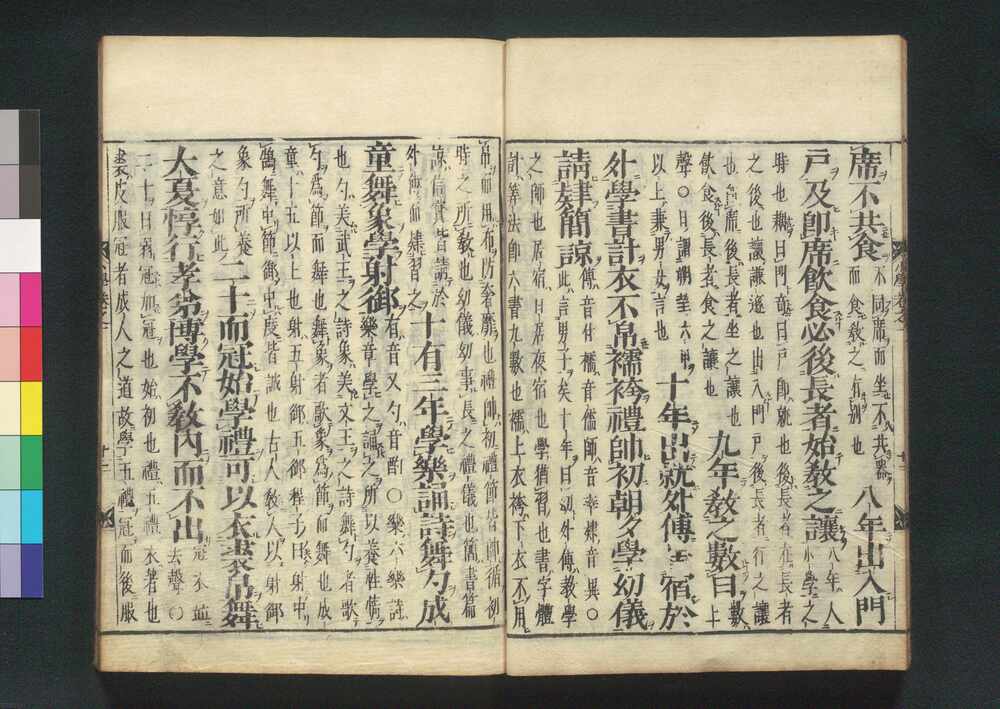 席不共食 不同席而坐不共器 而食教之有別也 八年出入門
戶及卽席飲食必後長者始教之讓 八年入 小學之
時也耦曰門奇曰戶卽就也後長者在長者
之後也讓謙遜也出入門戶後長者行之讓
也卽席後長者坐之讓也 飲食後長者食之讓也 九年教之數日 數 上
聲○日謂朔望六甲 以上兼男女言也 十年出就外傅居宿於
外學書計衣不帛襦袴禮帥初朝夕學幼儀
請肄簡諒 傅音付襦音儒帥音率肄音異○ 此言男子矣十年曰幼外傅教學
之師也居宿日居夜宿也學猶習也書字體
計筭法卽六書九數也襦上衣袴下衣不用
帛而用布防奢靡也禮帥初禮節皆帥循初
時之所教也幼儀幼事長之禮儀也簡書篇
諒信實皆請於 外傅而練習之 十有三年學樂誦詩舞勺成
童舞象學射御 有音又勺音酌○樂六樂詩 樂章學之誦之所以養性情
也勺美武王之詩象美文王之詩舞勺者歌
勺爲節而舞也舞象者歌象爲節而舞也成
童十五以上也射五射御五御程子曰射中
鵠舞中節御中度皆誠也古人教人以射御
象勺所養 之意如此 二十而冠始學禮可以衣裘帛舞
大夏惇行孝弟博學不教內而不出 冠衣並 去聲○
二十曰弱冠加冠也始初也禮五禮衣著也
裘皮服冠者成人之道故學五禮冠而後服